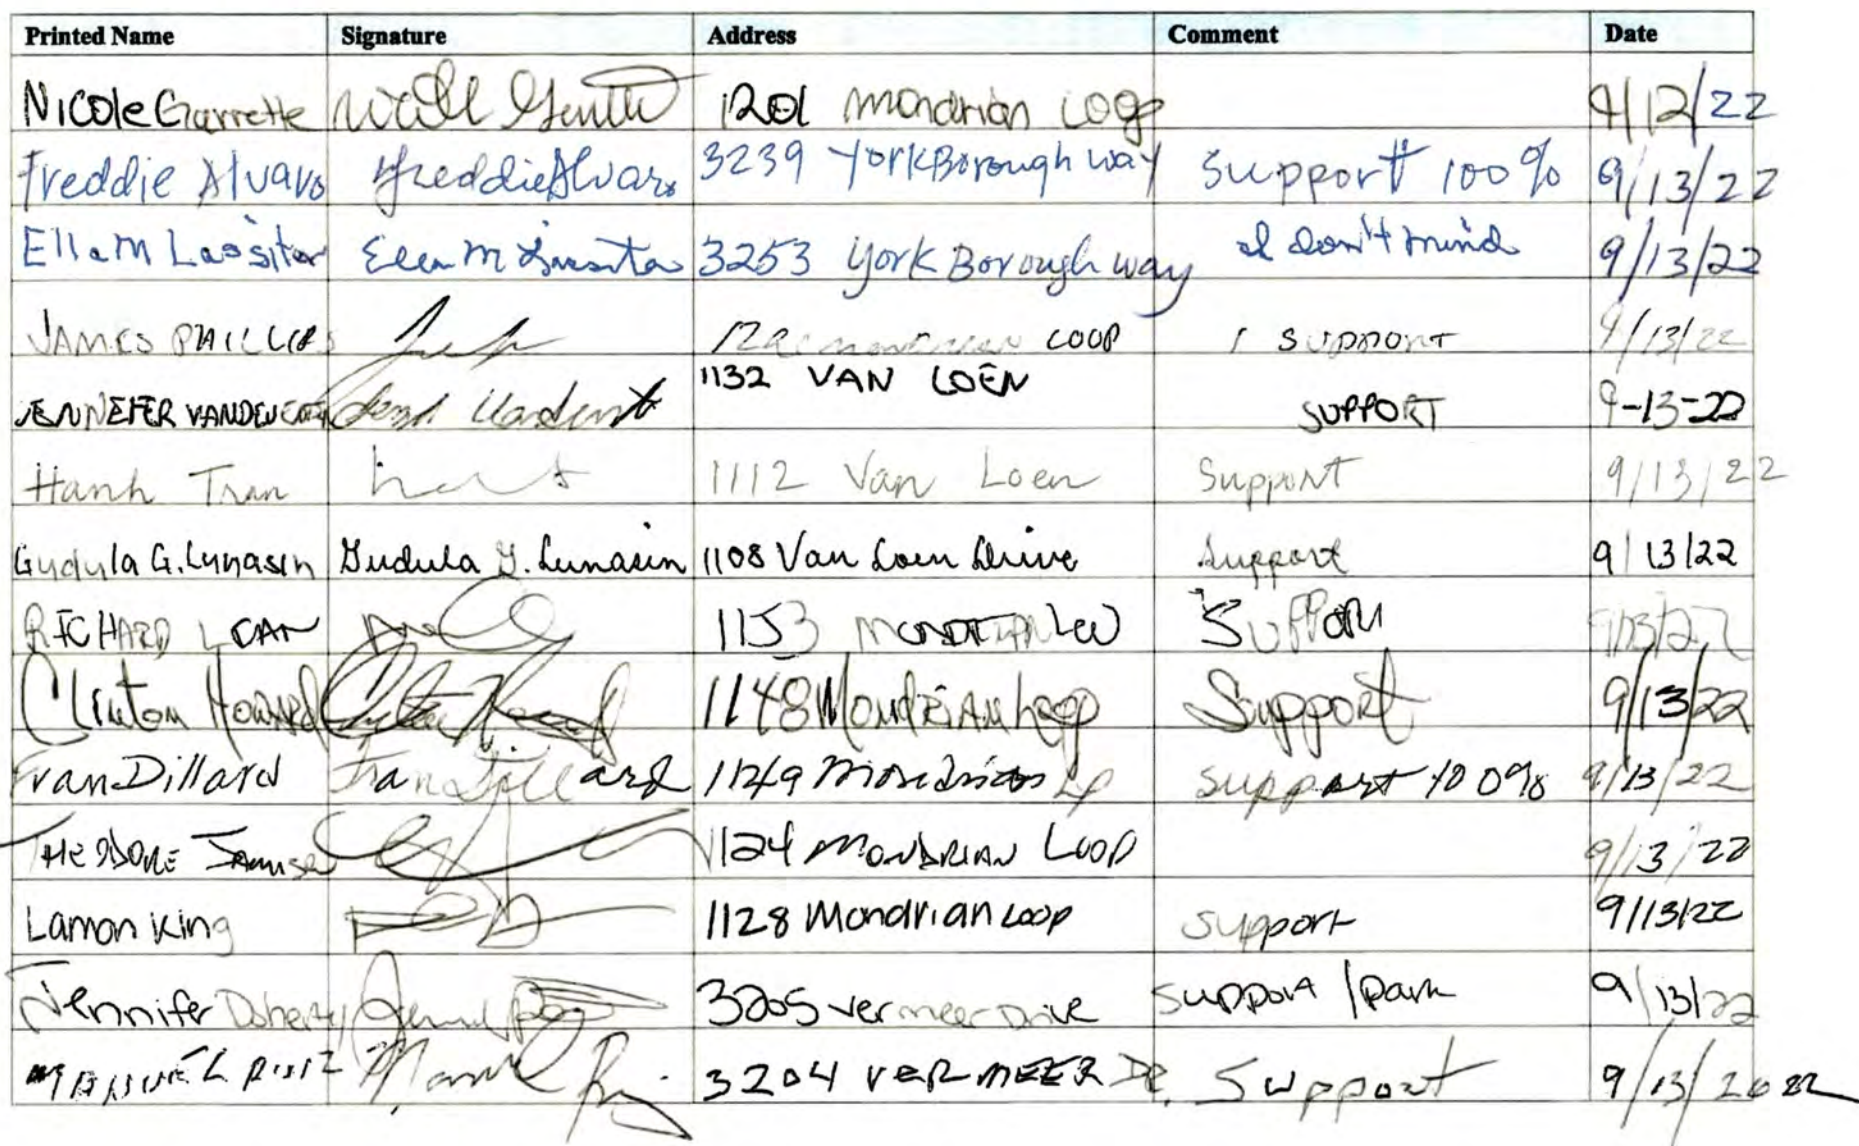 Printed Name Signature Address Comment Date
Nicole Garrette 1201 mondrian Loop 9/12/22
Freddie Alvaro Freddie Alvaro 3239 YorkBorough way Support 100% 9/13/22
Ella M Lassiter Ella M Lassiter 3253 york Borough way I don't mind 9/13/22
JAMES PHILLIPS LOOP I SUPPORT 9/13/22
JENNEFER 1132 VAN LOEN SUPPORT 9-13-22
Hanh Tran 1112 Van Loen Support 9/13/22
Gudula G. Lunasin Gudula G. Lunasin 1108 Van Loen Drive Support 9/13/22
RICHARD 1153 9/13/22
Clinton Howard 1148 Mondrian Loop Support 9/13/22
Fran Dillard Fran Dillard 1149 Mondrian Lp support 100% 9/13/22
THEODORE 1124 MONDRIAN LOOP 9/13/22
Lamon King 1128 Mondrian Loop support 9/13/22
Jennifer Doherty 3205 vermeer Drive support /park 9/13/22
MANUEL RUIZ 3204 VERMEER DR. Support 9/13/2022